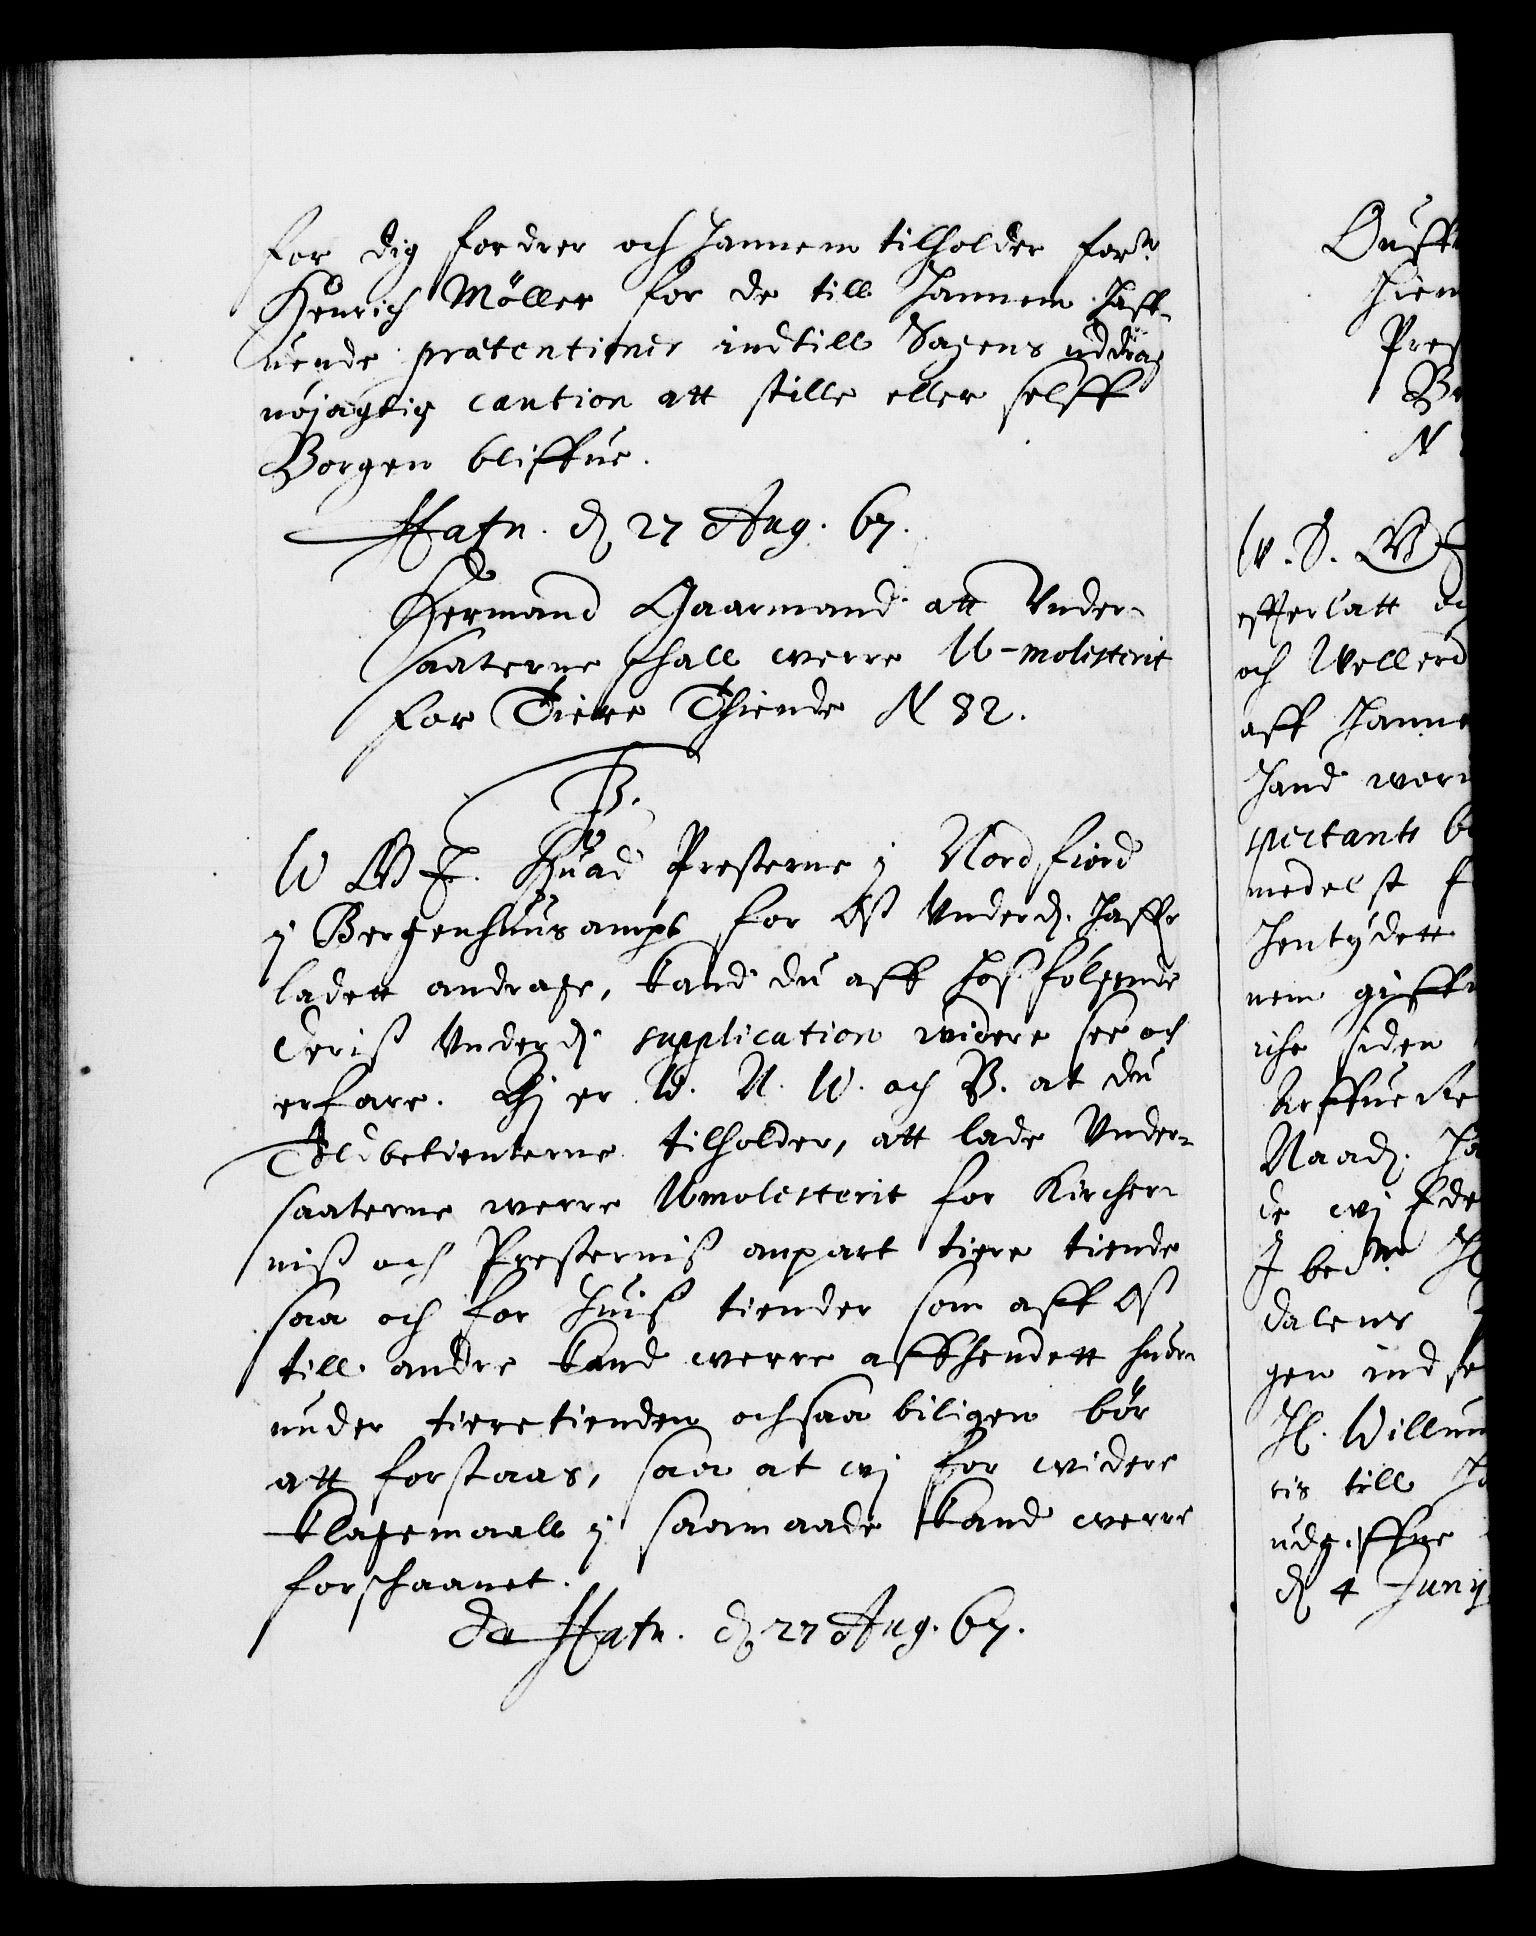 for dig fordrer och hannem tilholder forne
Henrich Möller for de till hannem haff-
uende prætentioner indtill Sagens uddrag
nöjagtig caution att stille eller selff
Borgen bliffue.
Hafn. d 27 Aug. 67.
Hermand Gaarmand att Vnder-
saaterne schall werre U-molesterit
for Tiere Thiende N 82.
F 3.
W G T. Huad Presterne i Nordfiord
i Bergenhuus ampt for Oß Underd. haffr
ladett andrage, kand du aff hoßfölgende
deriß Underd. supplication widere see och
erfare. Thi er W. N. W. och B. at du
Toldbetienterne tilholder, att lade Vnder-
saaterne werre Umolesterit for Kircher-
niß och Presterniß anpart tiere tiende
saa och for huiß tiender som aff Oß
till andre kand werre affhendett huor-
under tieretienden ochsaa biligen bör
att forstaas, saa at wi for widere
klagemaall i saamaade kand werre
forschaanet.
Da Hafn. d 27 Aug. 67.
Pres
N
W. S. G T
efterlatt
och Vellerd
aff hanne
spectants
medelst
hentydett
nem giffu
siden
Naad.
de wi
dalens
gen indse
H. Willum
ris till
udgiffne
d 4 Junij